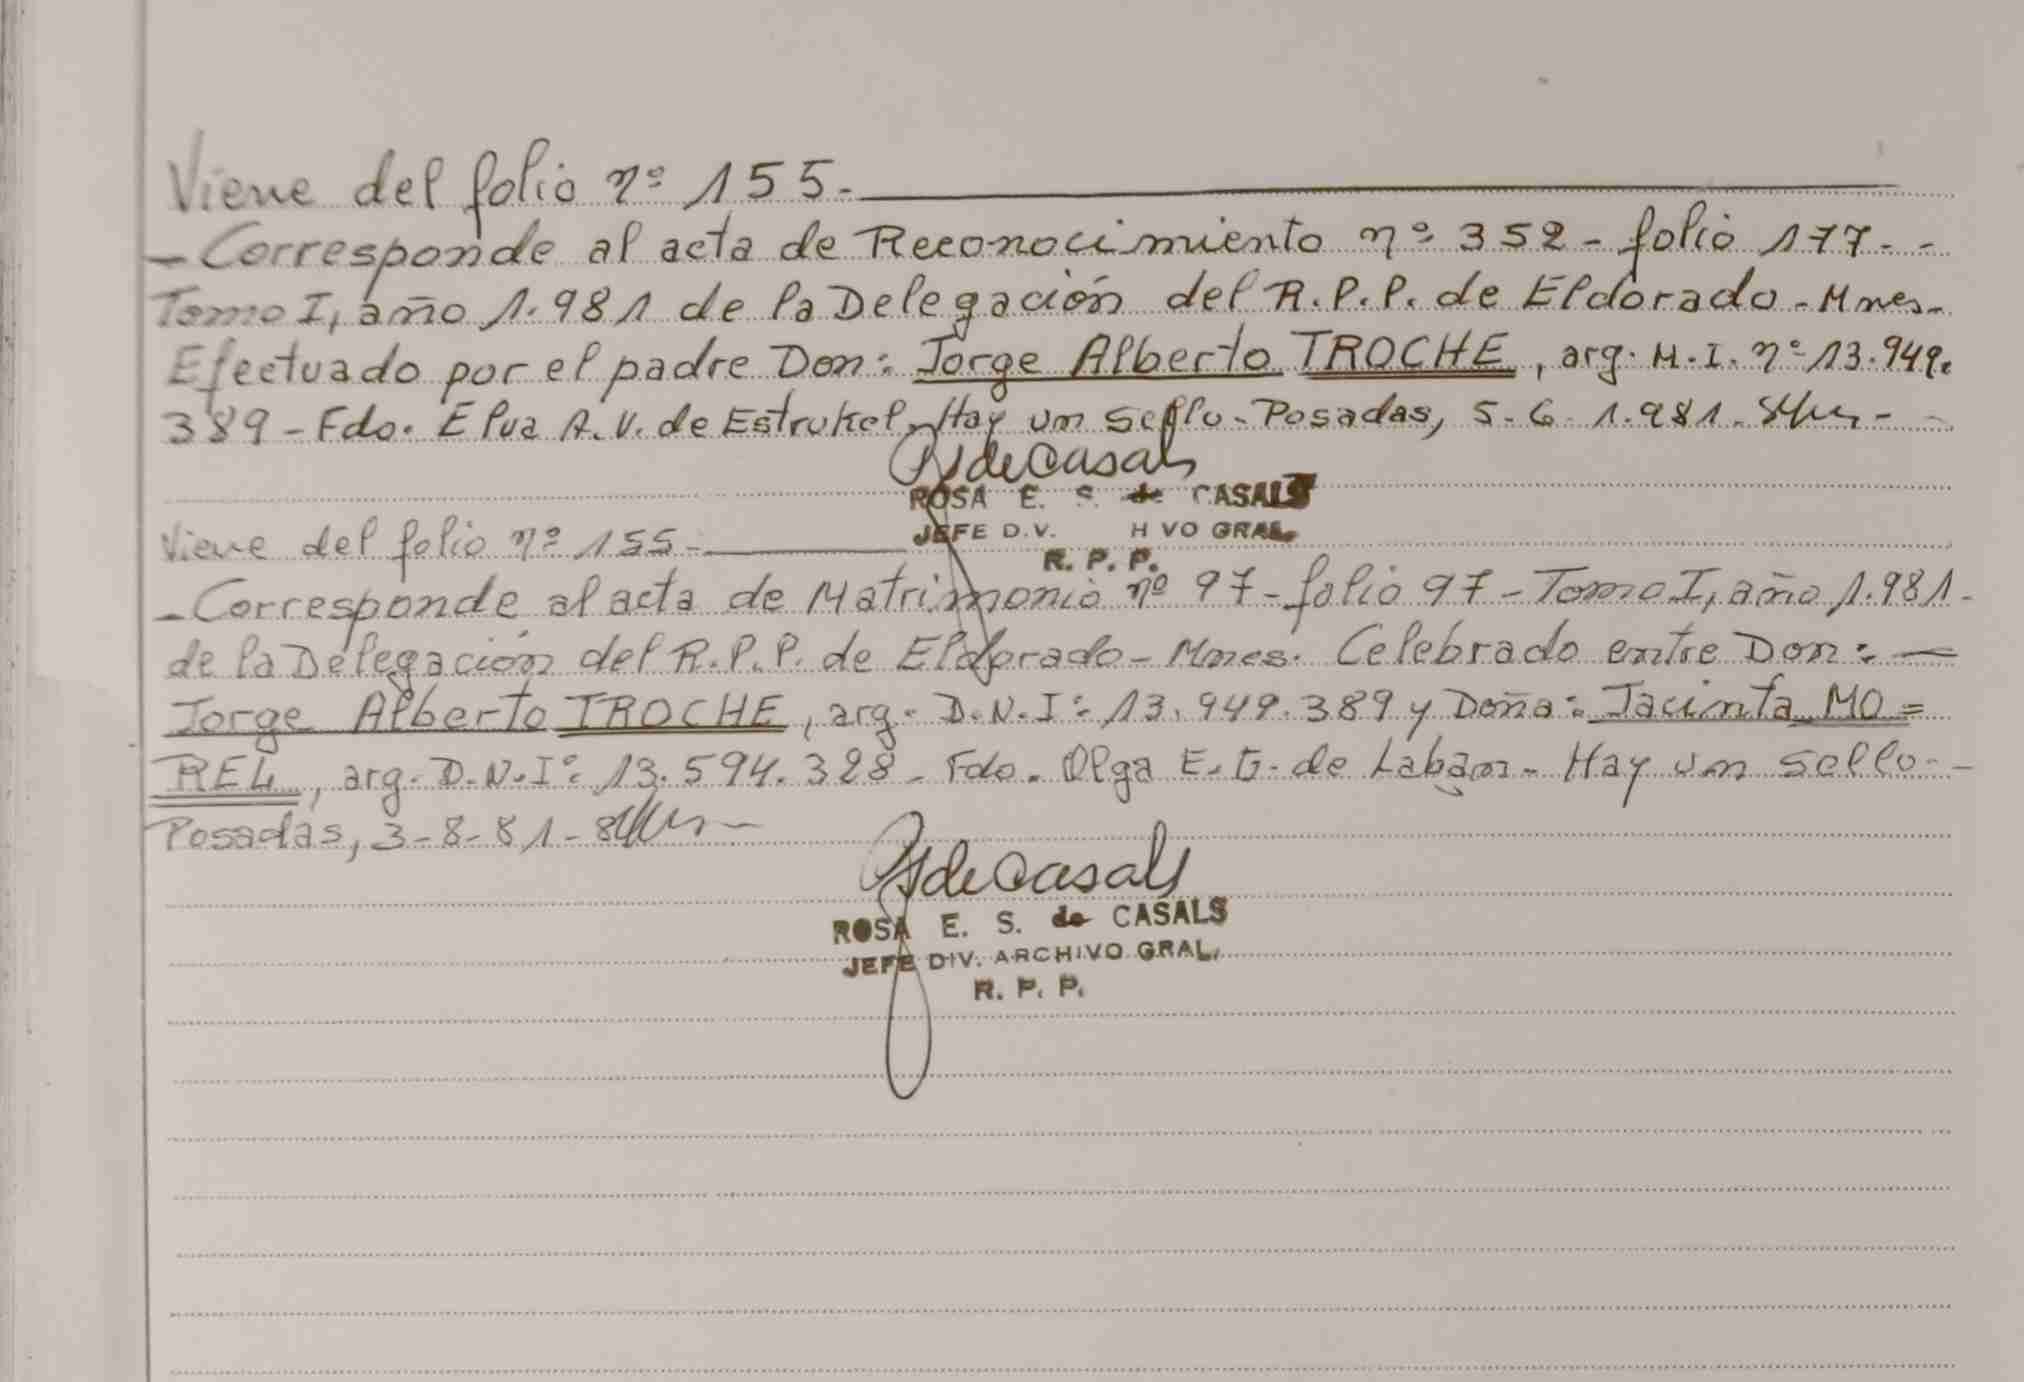 Viene del folio nº 155.-
- Corresponde al acta de Reconocimiento nº 352 - folio 177 - -
Tomo I, año 1.981 de la Delegación del R.P.P. de Eldorado - Mnes -
Efectuado por el padre Don: Jorge Alberto TROCHE, arg. M.I. nº 13.949.
389 - Fdo. Elva A.V. de Estrukel. Hay un sello - Posadas, 5-6-1.981.
RSdeCasals
ROSA E. S. de CASALS
JEFE D.V. H VO GRAL.
R. P. P.
Viene del folio nº 155 -
- Corresponde al acta de Matrimonio nº 97 - folio 97 - Tomo I, año 1.981 -
de la Delegación del R.P.P. de Eldorado - Mnes. Celebrado entre Don: -
Jorge Alberto TROCHE, arg. D.N.Iº: 13.949.389 y Doña: Jacinta MO=
REL, arg. D.N.Iº: 13.594.328 - Fdo. Olga E. G. de Laban - Hay un sello - -
Posadas, 3-8-81 -
RSdeCasals
ROSA E. S. de CASALS
JEFE DIV. ARCHIVO GRAL.
R. P. P.